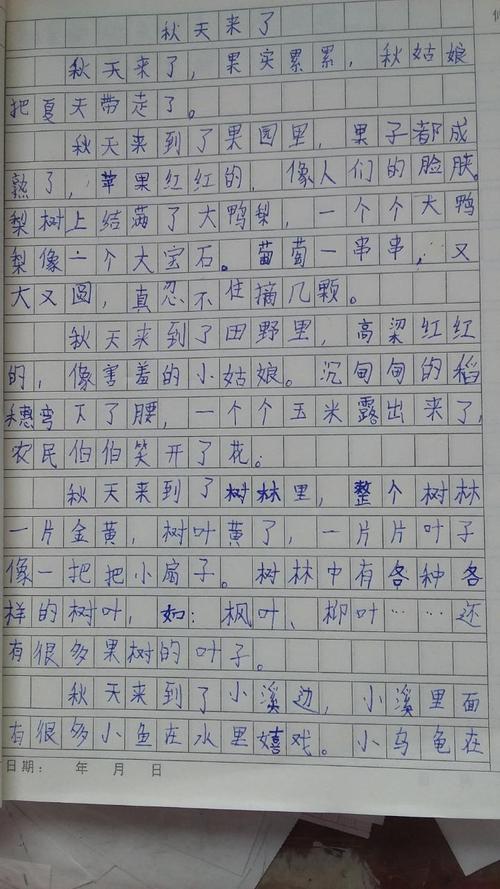 秋天来了
秋天来了，果实累累，秋姑娘
把夏天带走了。
秋天来到了果园里，果子都成
熟了，苹果红红的，像人们的脸肤。
梨树上结满了大鸭梨，一个个大鸭
梨像一个大宝石。葡萄一串串，又
大又圆，真忍不住摘几颗。
秋天来到了田野里，高粱红红
的，像害羞的小姑娘。沉甸甸的稻
穗弯下了腰，一个个玉米露出来了，
农民伯伯笑开了花。
秋天来到了树林里，整个树林
一片金黄，树叶黄了，一片片叶子
像一把把小扇子。树林中有各种各
样的树叶，如：枫叶、柳叶……还
有很多果树的叶子。
秋天来到了小溪边，小溪里面
有很多小鱼在水里嬉戏。小乌龟在
日期： 年 月 日